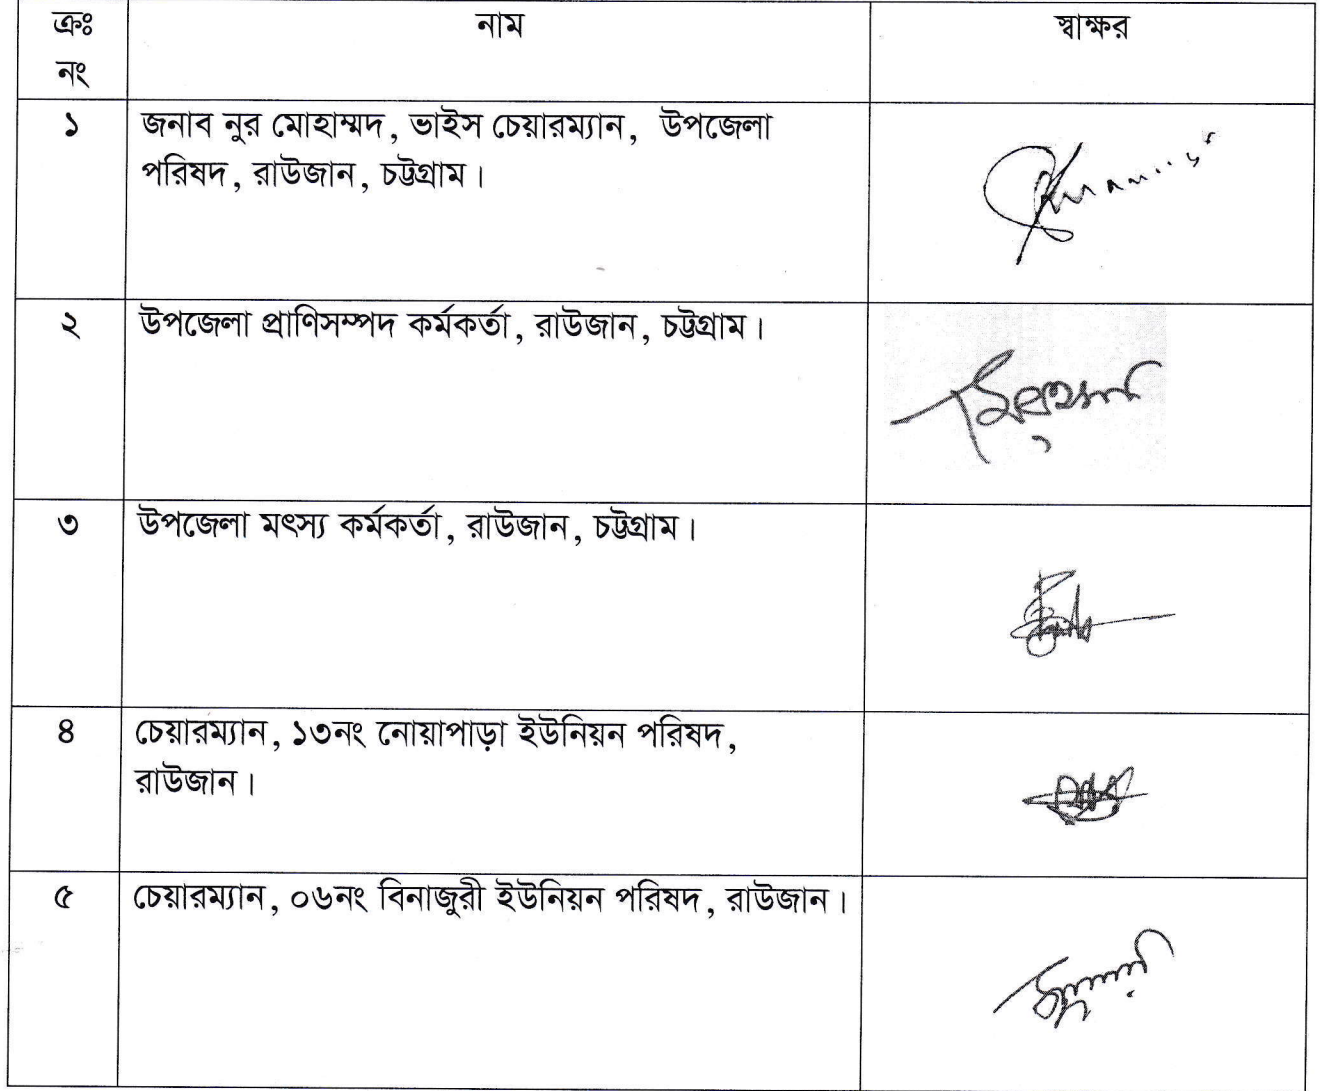 ক্রঃ নাম স্বাক্ষর
নং
১ জনাব নুর মোহাম্মদ, ভাইস চেয়ারম্যান, উপজেলা
পরিষদ, রাউজান, চট্টগ্রাম।
২ উপজেলা প্রাণিসম্পদ কর্মকর্তা, রাউজান, চট্টগ্রাম।
৩ উপজেলা মৎস্য কর্মকর্তা, রাউজান, চট্টগ্রাম।
৪ চেয়ারম্যান, ১৩নং নোয়াপাড়া ইউনিয়ন পরিষদ,
রাউজান।
৫ চেয়ারম্যান, ০৬নং বিনাজুরী ইউনিয়ন পরিষদ, রাউজান।